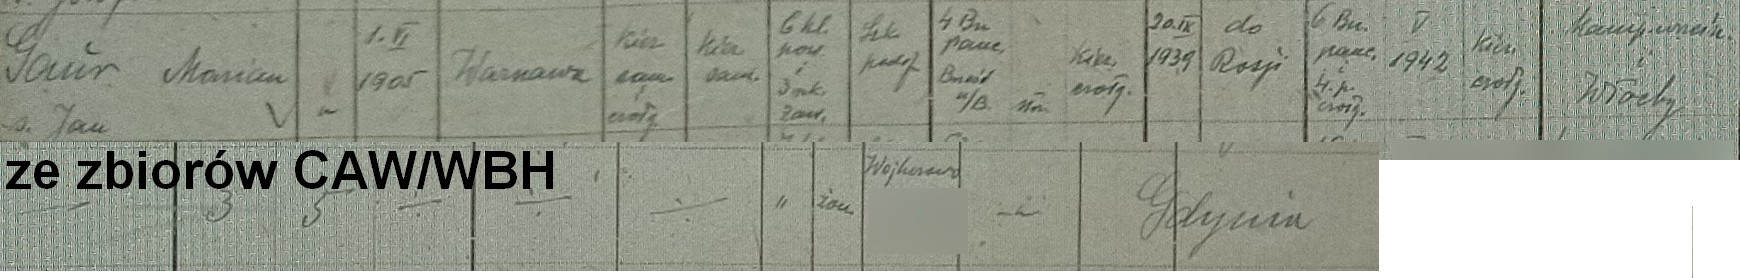 Gaŭr Marian
s. Jan
1. VI
1905
Warszawa
Kier
sam.
i
czołg
Kier
sam.
6 kl.
pow.
i
Szk.
zaw.
Szk.
podof
4 Bn
panc.
Brześć
n/B.
Kier.
czołg.
20.IX
1939
do
Rosji
6 Bn.
panc.
i
4. p.
czołg.
V
1942
Kier.
czołg.
i
Włochy
ze zbiorów CAW/WBH
3
5
"
żon
Wejherowo
Gdynia